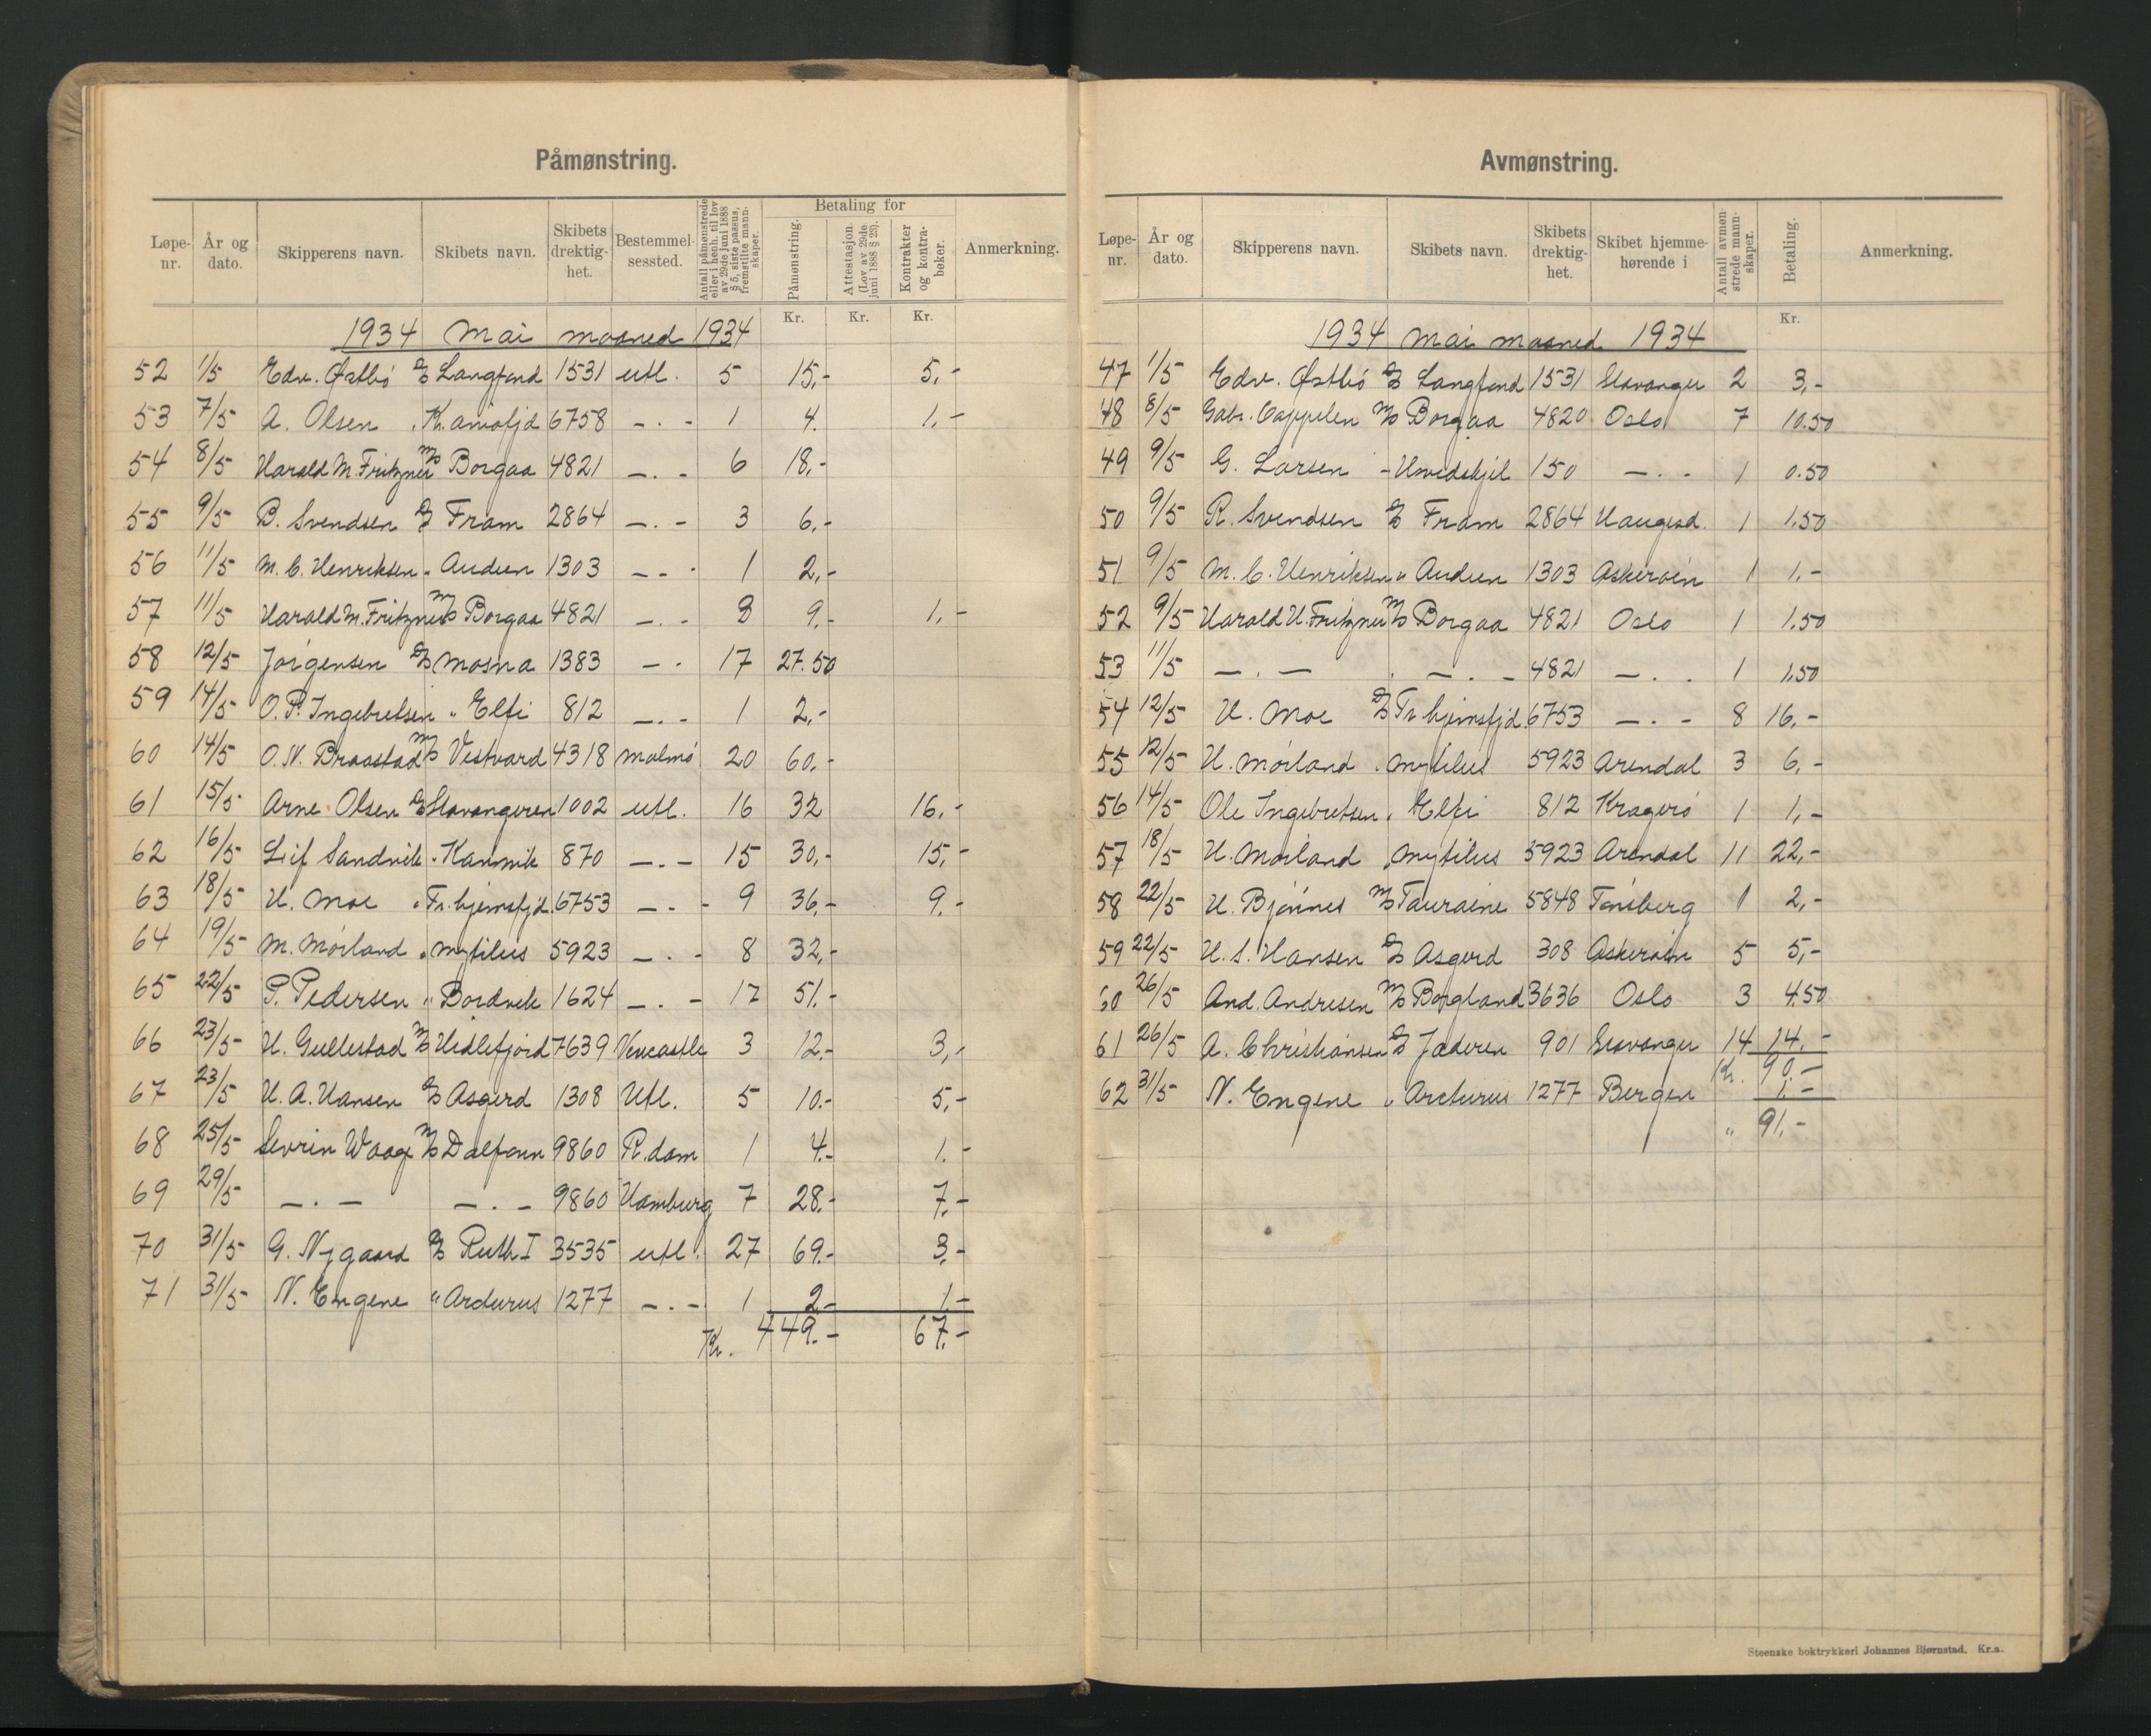 Påmønstring.
Løpe-nr. År og dato. Skipperens navn. Skibets navn. Skibets drektig-het. Bestemmel-sessted. Antall påmønstrede eller i henh. til lov av 29de juni 1888 § 5, siste passus, fremstilte mann-skaper. Betaling for Påmønstring. Attestasjon. (Lov av 29de juni 1888 § 23). Kontrakter og kontra-bøker. Anmerkning.
Kr. Kr. Kr.
1934 Mai maaned 1934
52 1/5 Edv. Østbö D/S Langfond 1531 utl. 5 15,- 5,-
53 7/5 A. Olsen " 6758 -.- 1 4. 1,-
54 8/5 Harald M. Fritzner M/S Borgaa 4821 -.- 6 18,-
55 9/5 B. Svendsen D/S Fram 2864 -.- 3 6,-
56 11/5 M. C. Henriksen " Audun 1303 -.- 1 2,-
57 11/5 Harald M. Fritzner M/S Borgaa 4821 -.- 3 9,- 1,-
58 12/5 Jörgensen D/S Mosna 1383 -.- 17 27.50
59 14/5 O. P. Ingebretsen " Elfi 812 -.- 1 2,-
60 14/5 O. N. Braastad M/S Vestvard 4318 Malmö 20 60,-
61 15/5 Arne Olsen D/S Stavangeren 1002 utl. 16 32 16,-
62 16/5 Leif Sandvik " Karmvik 870 -.- 15 30,- 15,-
63 18/5 H. Moe " Tr.hjemsfjd. 6753 -.- 9 36,- 9,-
64 19/5 M. Mörland " Mytilus 5923 -.- 8 32,-
65 22/5 P. Pedersen " Bordvik 1624 -.- 17 51.-
66 23/5 H. Gullestad M/S Hidlefjord 7639 Vencastle 3 12,- 3,-
67 23/5 H. A. Hansen D/S Asgerd 1308 Utl. 5 10.- 5,-
68 25/5 Sevrin Waage M/S Dalfonn 9860 R.dam 1 4.- 1.-
69 29/5 -.- -.- 9860 Hamburg 7 28.- 7.-
70 31/5 G. Nygaard D/S Ruth I 3535 utl. 27 69.- 3.-
71 31/5 N. Engene " Arcturus 1277 -.- 1 2.- 1.-
Kr. 449.- 67.-
Avmønstring.
Løpe-nr. År og dato. Skipperens navn. Skibets navn. Skibets drektig-het. Skibet hjemme-hørende i Antall avmøn-strede mann-skaper. Betaling. Anmerkning.
Kr.
1934 Mai maaned 1934
47 1/5 Edv. Østbö D/S Langfond 1531 Stavanger 2 3,-
48 8/5 Gabr. Cappelen M/S Borgaa 4820 Oslo 7 10.50
49 9/5 G. Larsen - Hvidskjel 150 -.- 1 0.50
50 9/5 R. Svendsen D/S Fram 2864 Haugesd. 1 1.50
51 9/5 M. C. Henriksen " Audun 1303 Askeröen 1 1.-
52 9/5 Harald H. Fritzner M/S Borgaa 4821 Oslo 1 1.50
53 11/5 -.- -.- 4821 -.- 1 1.50
54 12/5 H. Moe D/S Tr.hjemsfjd. 6753 -.- 8 16,-
55 12/5 H. Mörland " Mytilus 5923 Arendal 3 6,-
56 14/5 Ole Ingebretsen " Elfi 812 Kragerö 1 1,-
57 18/5 H. Mörland " Mytilus 5923 Arendal 11 22,-
58 22/5 H. Bjönnes M/S Tauraine 5848 Tönsberg 1 2,-
59 22/5 H. S. Hansen D/S Asgerd 308 Askeröen 5 5,-
60 26/5 And. Andresen M/S Borgland 3636 Oslo 3 4.50
61 26/5 A. Christiansen D/S Jæderen 901 Stavanger 14 14.-
Kr. 90.-
62 31/5 N. Engene " Arcturus 1277 Bergen 1.-
" 91.-
Steenske boktrykkeri Johannes Bjørnstad. Kr.a.